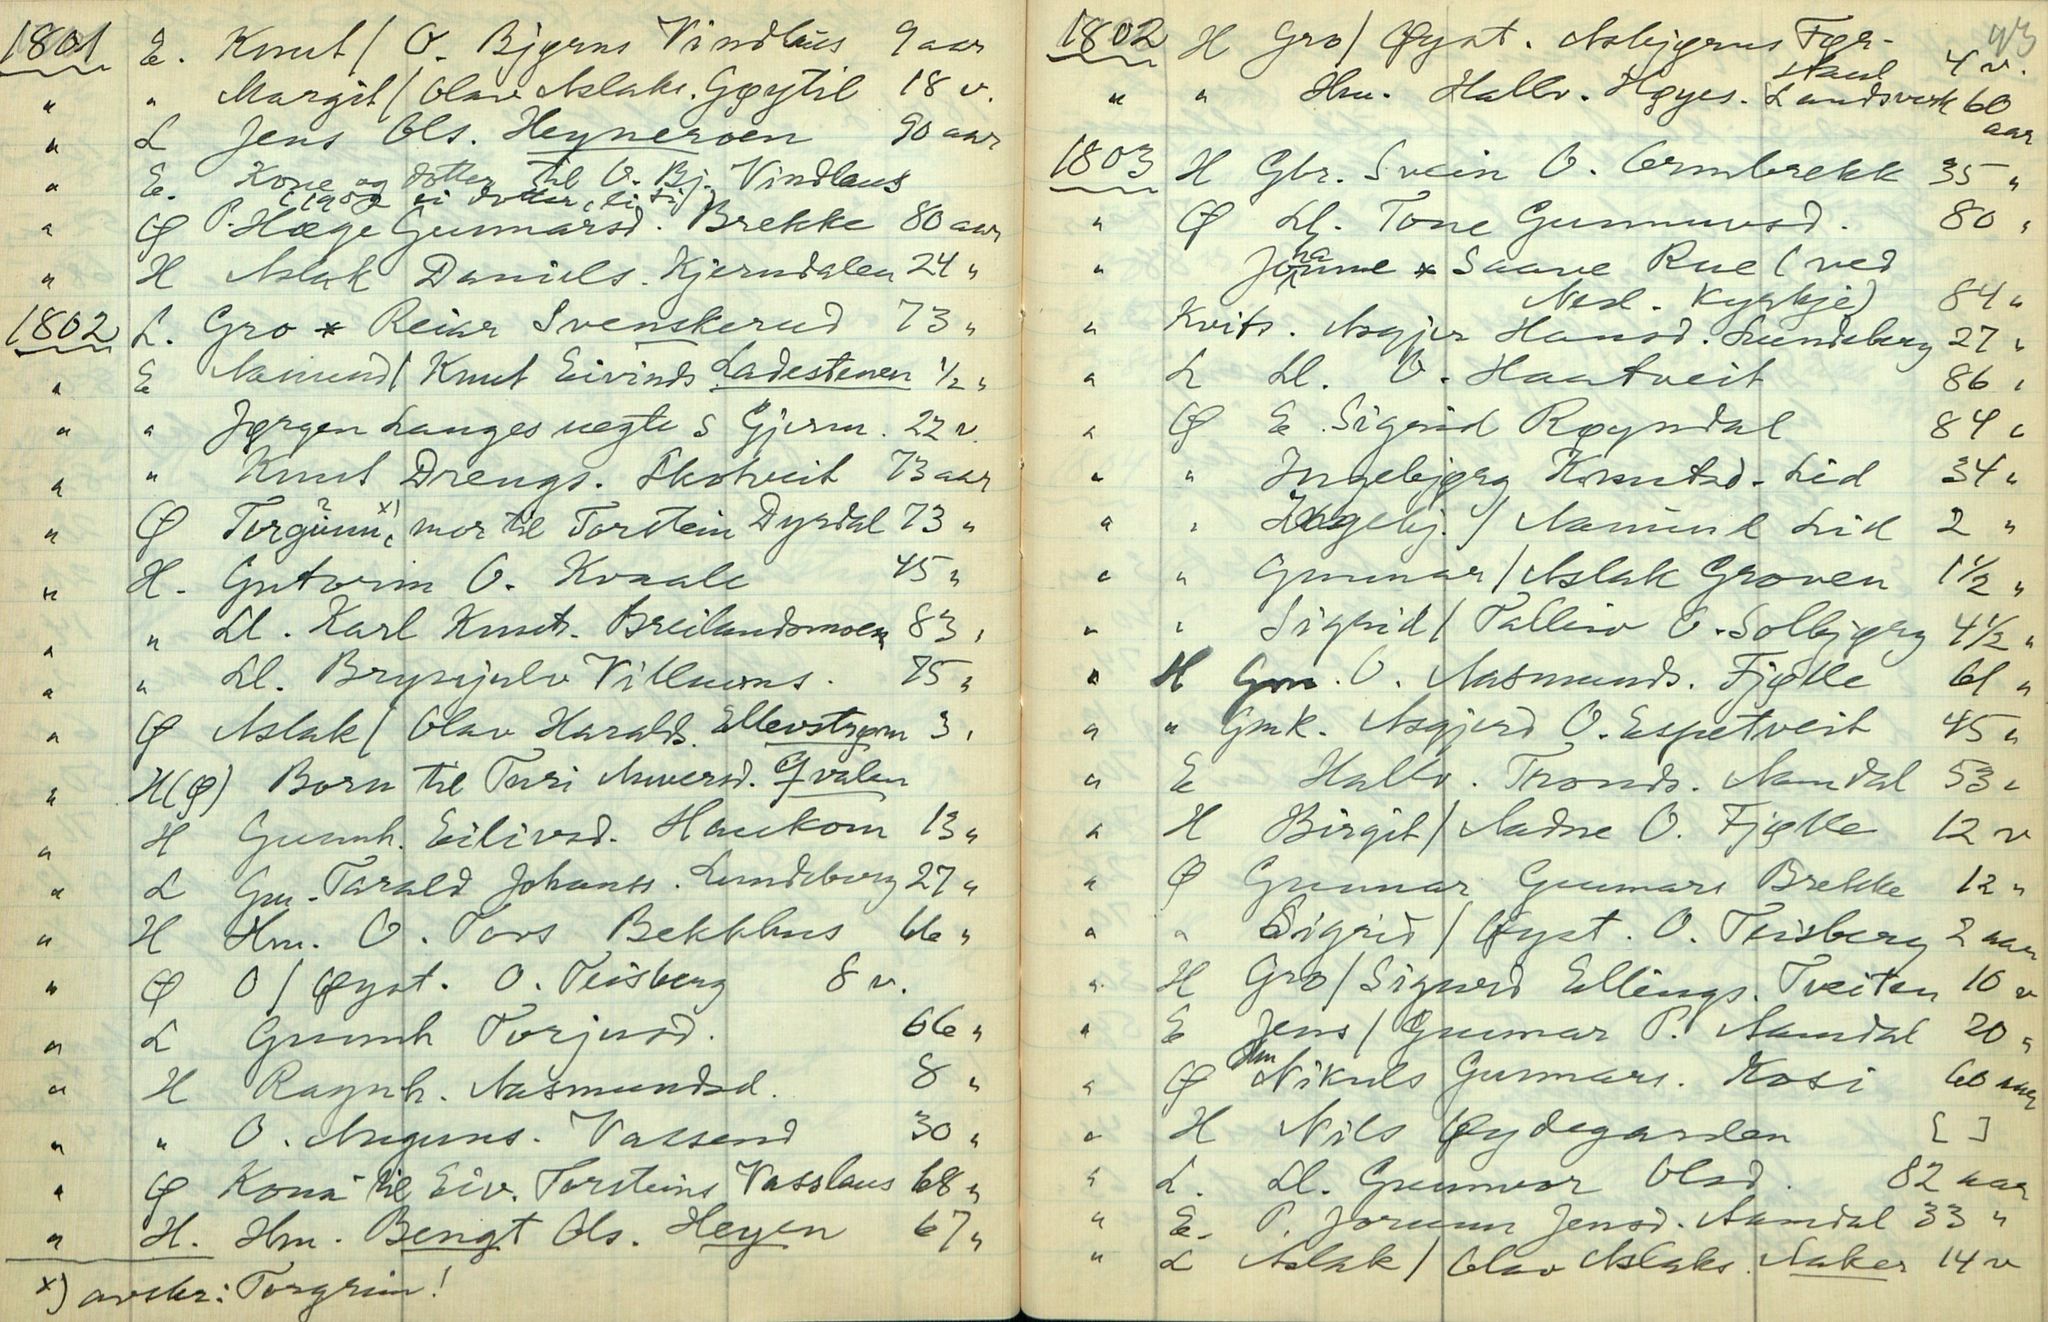 1801 E. Knut / O. Bjørns Vindlaus 9 aar
" " Margit / Olav Aslaks. Gøytil 18 v.
" L Jens Ols. Heyneroen 90 aar
" E. Kone og dotter til O. Bj. Vindlaus
" Ø P. Hæge Gunnarsd. Brekke 80 aar
" H Aslak Daniels. Kjerndalen 24 "
1802 L. Gro * Reiar Svenskerud 73 "
" E Aamund / Knut Eivinds Ladestenen 1/2 "
" " Jørgen Langes uegte S Gjerm. 22 v.
" " Knut Drengs. Skotveit 73 aar
" Ø Torgunn x), mor til Torstein Dyrdal 73 "
" H. Gutorm O. Kvaale 45 "
" " Ll. Karl Knuts. Breilandsmoen 83 "
" " Ll. Brynjulv Villums. 75 "
" Ø Aslak / Olav Haralds. Ellevstrøm 3 "
" H(Ø) Born til Turi Anversd. Qvalen
" H Gunnh. Eilivsd. Haukom 13 "
" L Gm. Tarald Johanss. Lundeberg 27 "
" H Hm. O. Tovs Bekkhus 66 "
" Ø O / Øyst. O. Teisberg 8 v.
" L Gunnh Torjusd. 66 "
" H Ragnh. Aasmundsd. 8 "
" " O. Auguns. Vassend 30 "
" Ø Kona til Eiv. Torsteins Vasslaus 68 "
" H. Hm. Bengt Ols. Heyen 67 "
x) avskr: Torgrim!
93
1802 H Gro / Øyst. Asbjørns Før-
naul 4 v.
" " Hm. Hallv. Høyes. Landsverk 60 aar
1803 H Gbr. Svein O. Ormbrekk 35 "
" Ø Ll. Tone Gunnuvsd. 80 "
" Johanne * Saave Rue (ved
Nesl. Kyrkje) 84 "
" Kvits. Asgjer Hansd. Lundeberg 27 "
" L Ll. O. Haatveit 86 "
" Ø E. Sigrid Røyndal 84 "
" " Ingebjørg Knutsd. Lid 34 "
" " Ingebj. / Aamund Lid 2 "
" " Gunnar / Aslak Groven 1 1/2 "
" " Sigrid / Talleiv O. Solbjørg 4 1/2 "
" H Gm. O. Aasmunds. Fjølle 61 "
" " Gmk. Asgjerd O. Espetveit 45 "
" E Hallv. Tronds. Aamdal 53 "
" H Birgit / Aadne O. Fjølle 12 v
" Ø Gunnar Gunnars Brekke 12 "
" " Sigrid / Øyst. O. Teisberg 2 aar
" H Gro / Sigurd Ellings. Tveiten 10 v
" E Jens / Gunnar P. Aamdal 20 "
" Ø Hm Nikuls Gunnars. Kosi 60 aar
" H Nils Øydegarden [ ]
" L. Ll. Gunnvor Olsd. 82 aar
" E. P. Jorunn Jensd. Aamdal 33 "
" L Aslak / Olav Aslaks. Naker 14 v